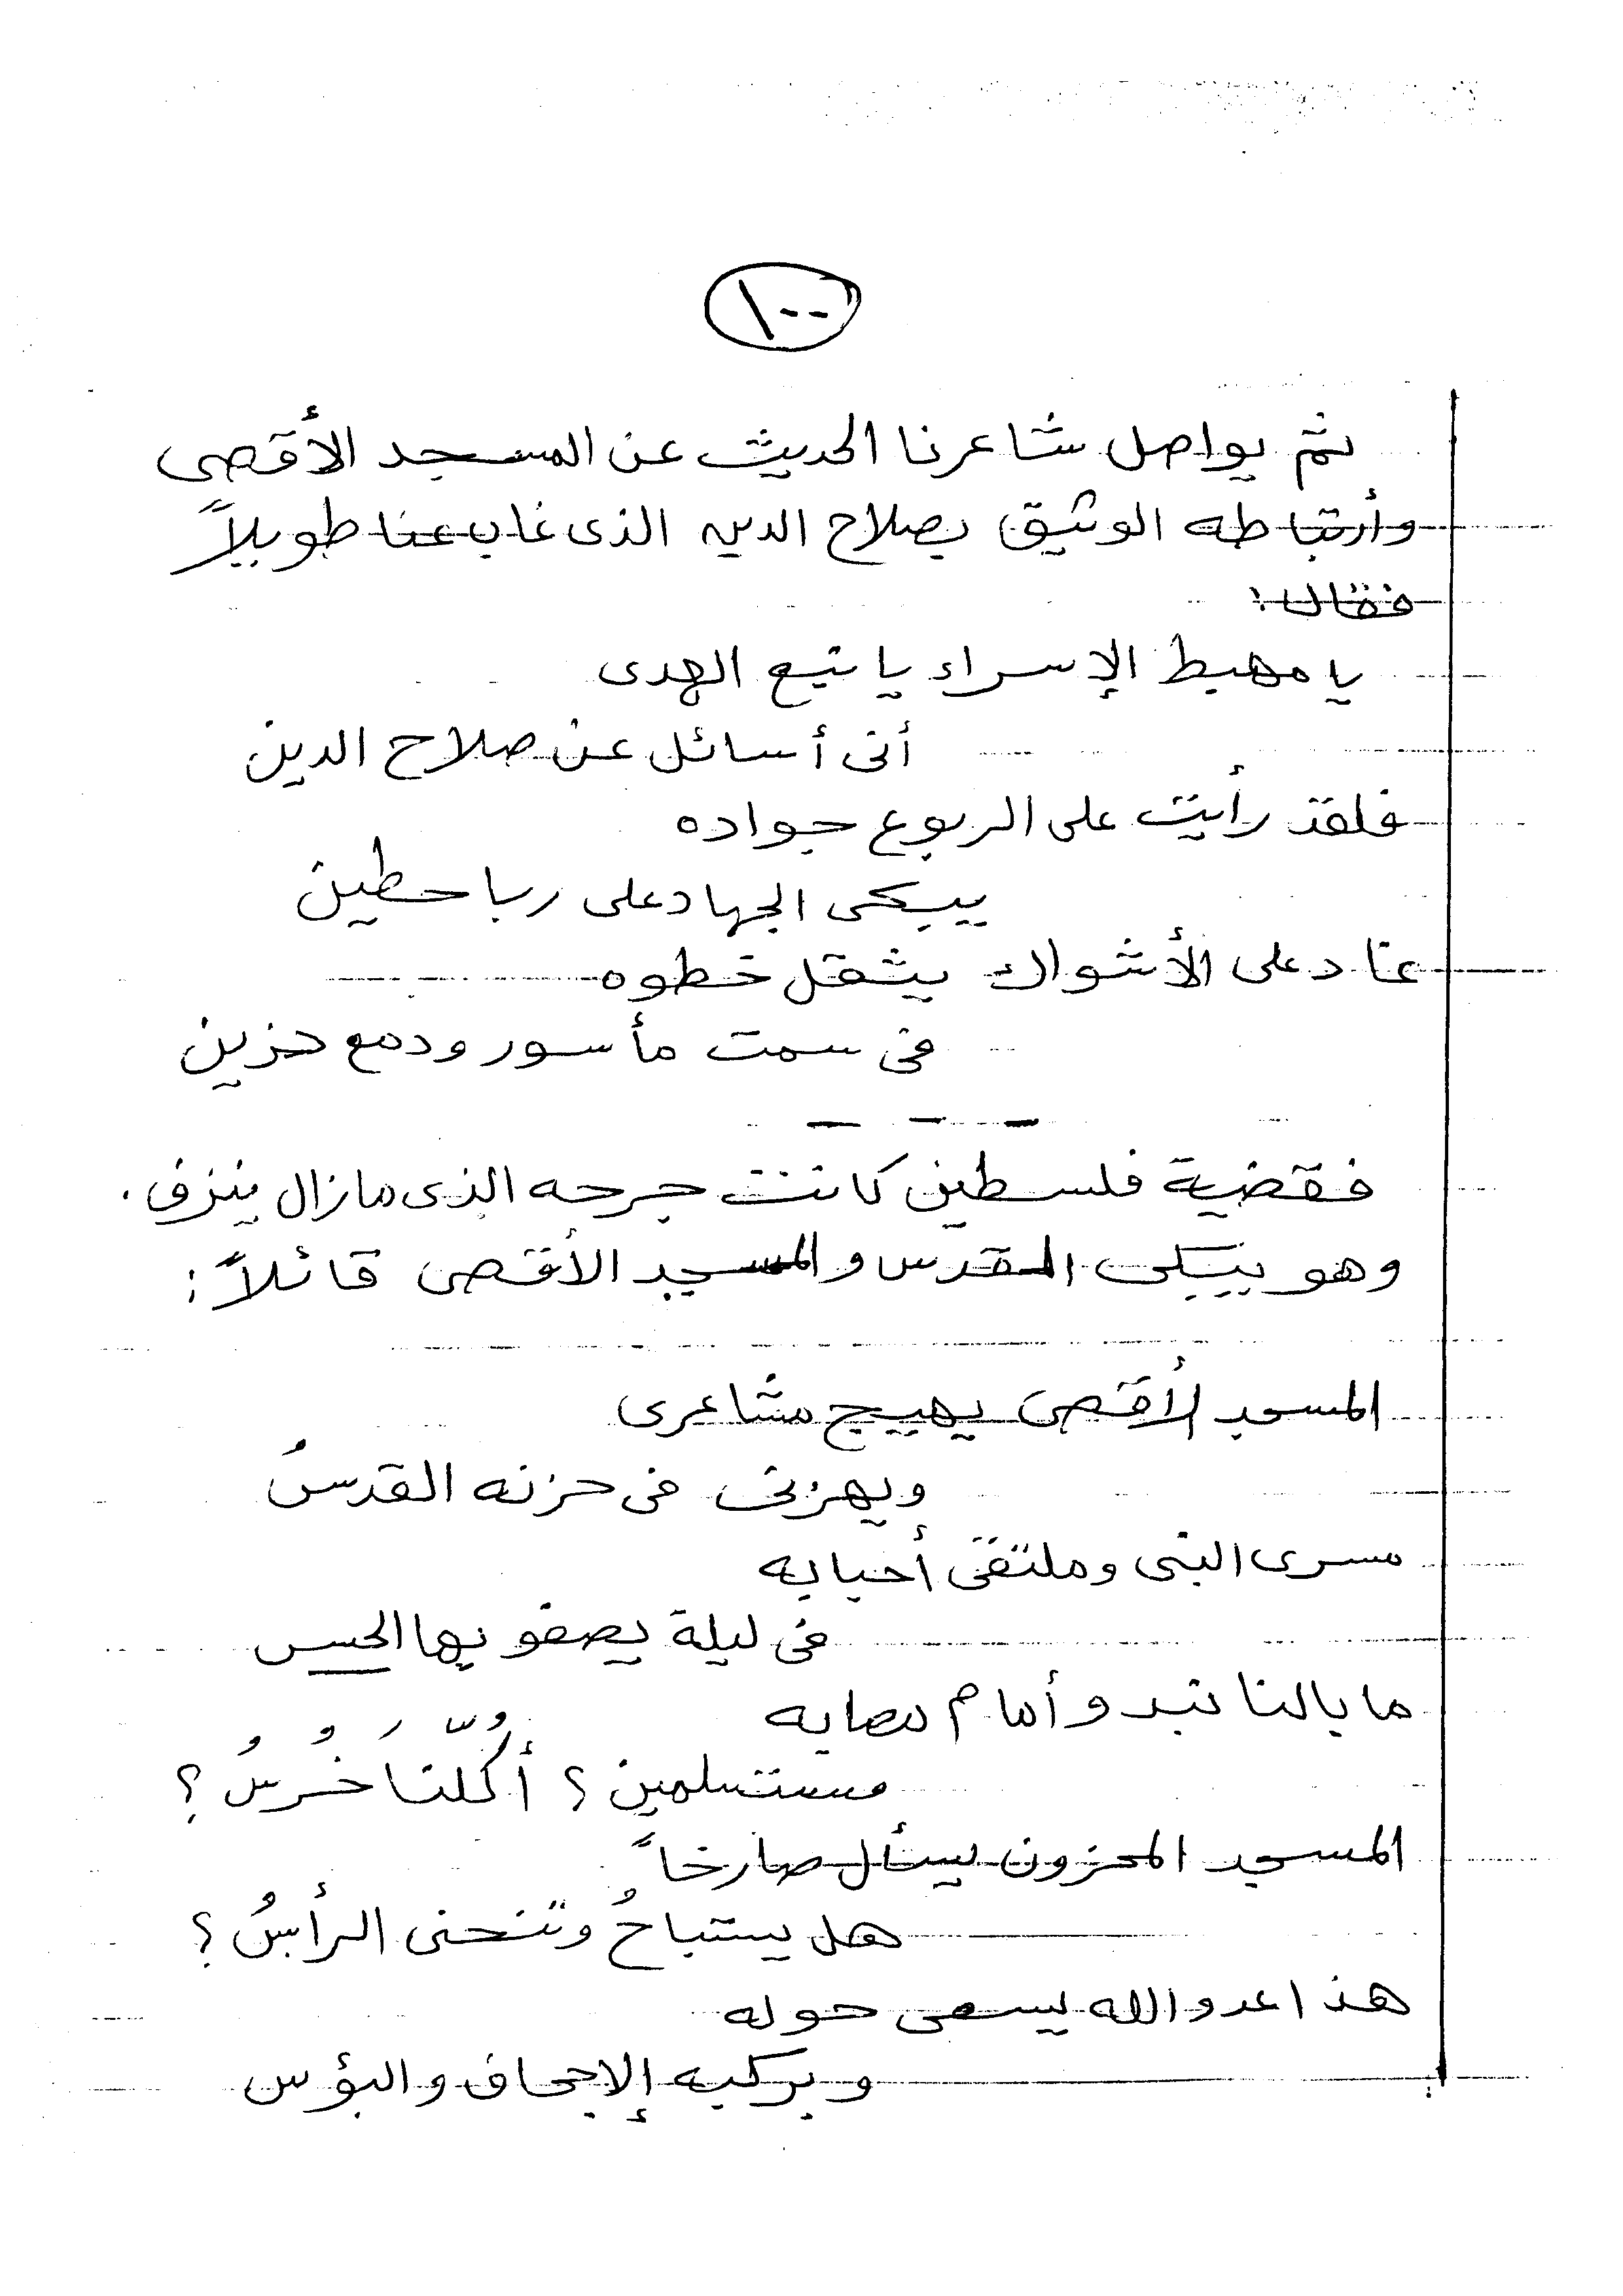 ١٠٠
ثم يواصل شاعرنا الحديث عن المسجد الأقصى
وأرتباطه الوثيق بصلاح الدين الذى غاب عنا طويلاً
فقال:
يا مهبط الإسراء يا نبع الهدى
أنى أسائل عن صلاح الدين
فلقد رأيت على الربوع جواده
يبكى الجهاد على ربا حطين
عاد على الأشواك يثقل خطوه
فى سمت مأسور ودمع حزين
فقضية فلسطين كانت جرحه الذى مازال ينزف.
وهو يبكى القدس والمسجد الأقصى قائلاً:
المسجد الأقصى يهيج مشاعرى
ويهزنى فى حزنه القدسُ
مسرى النبى وملتقى أحبابه
فى ليلة يصفو بها الحس
ما بالنا نبدو أمام مصابه
مستسلمين؟ أكُلّنَا خُرْسُ؟
المسجد المحزون يسأل صارخاً
هل يستباحُ وتنحنى الرأسُ؟
هذا عدو الله يسعى حوله
وبركبه الإجحاف والبؤس